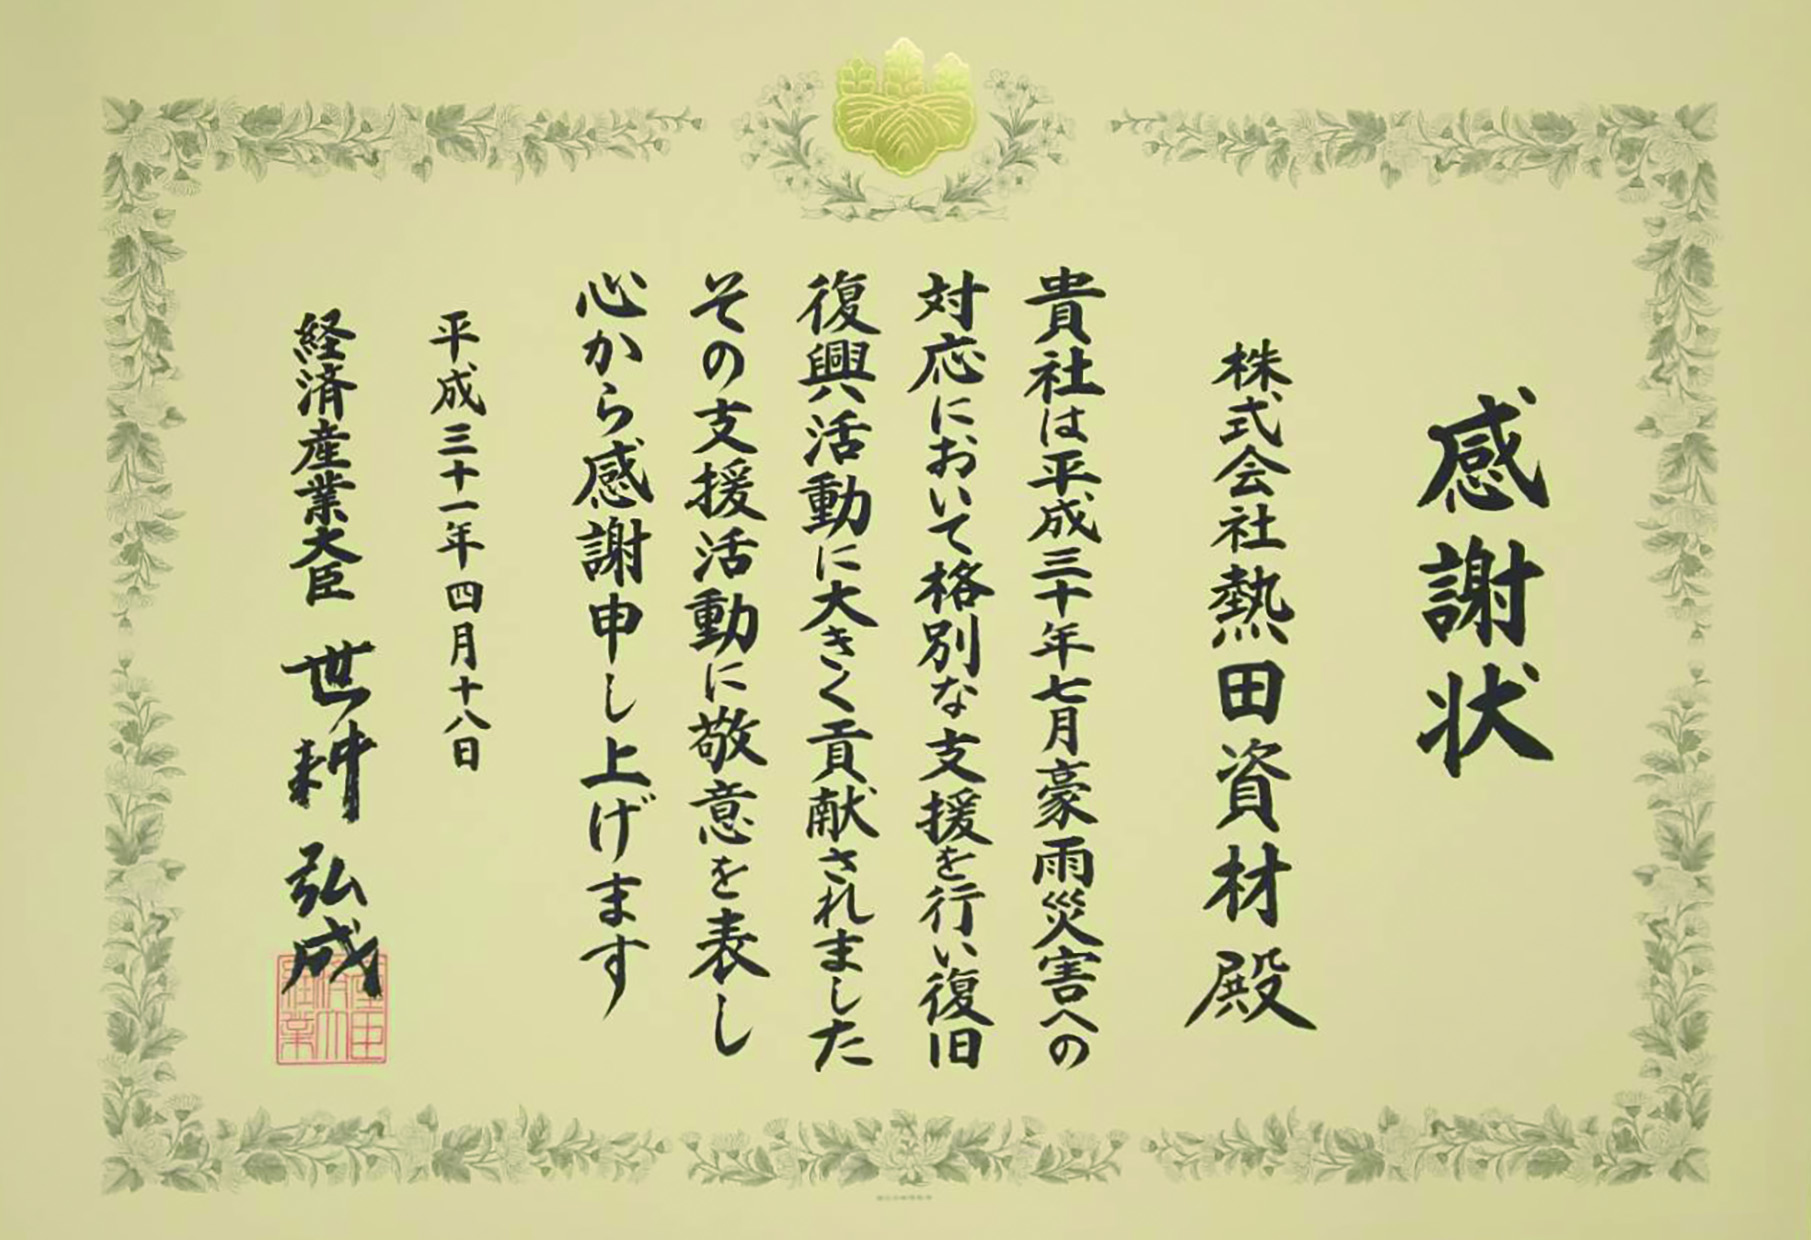 感謝状
株式会社熱田資材殿
貴社は平成三十年七月豪雨災害への
対応において格別な支援を行い復旧
復興活動に大きく貢献されました
その支援活動に敬意を表し
心から感謝申し上げます
平成三十一年四月十八日
経済産業大臣 世耕弘成